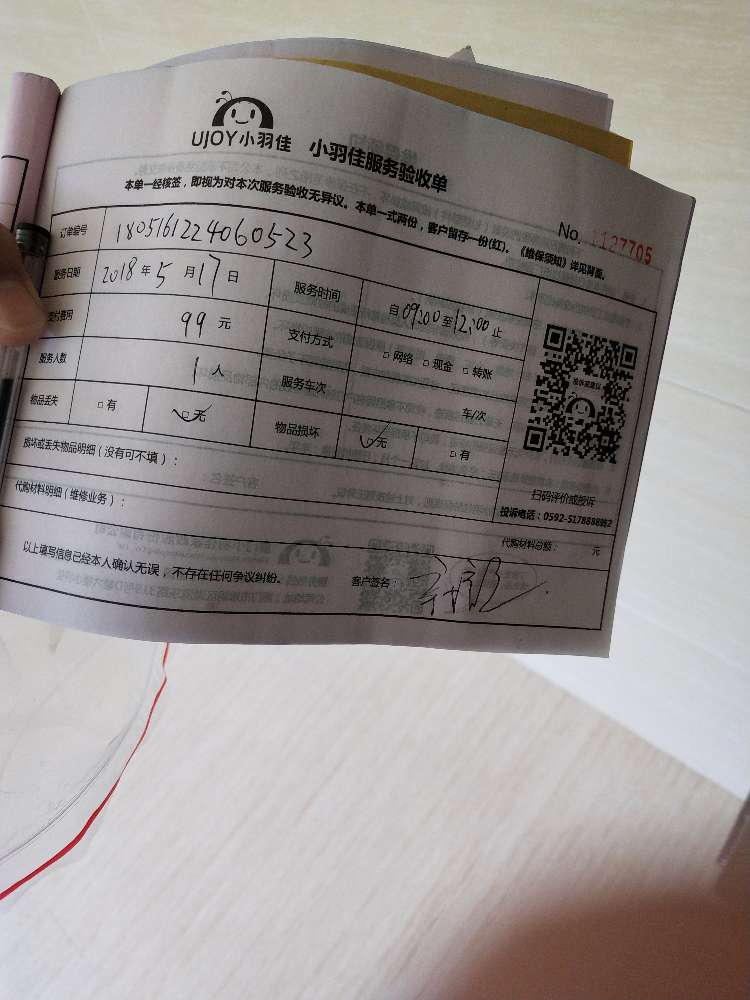 UJOY小羽佳 小羽佳服务验收单
本单一经核签，即视为对本次服务验收无异议。本单一式两份，客户留存一份(红)。《维保须知》详见背面。
No. 1127705
订单编号 1805161224060523
服务日期 2018年5月17日 服务时间 自09:00至12:00止
支付费用 99元 支付方式 □网络 □现金 □转账
服务人数 1人 服务车次 车/次
物品丢失 □有 □无 物品损坏 □无 □有
投诉或建议
扫码评价或投诉
投诉电话：0592-5178888转2
损坏或丢失物品明细（没有可不填）：
代购材料明细（维修业务）：
代购材料总额： 元
以上填写信息已经本人确认无误，不存在任何争议纠纷。 客户签名：